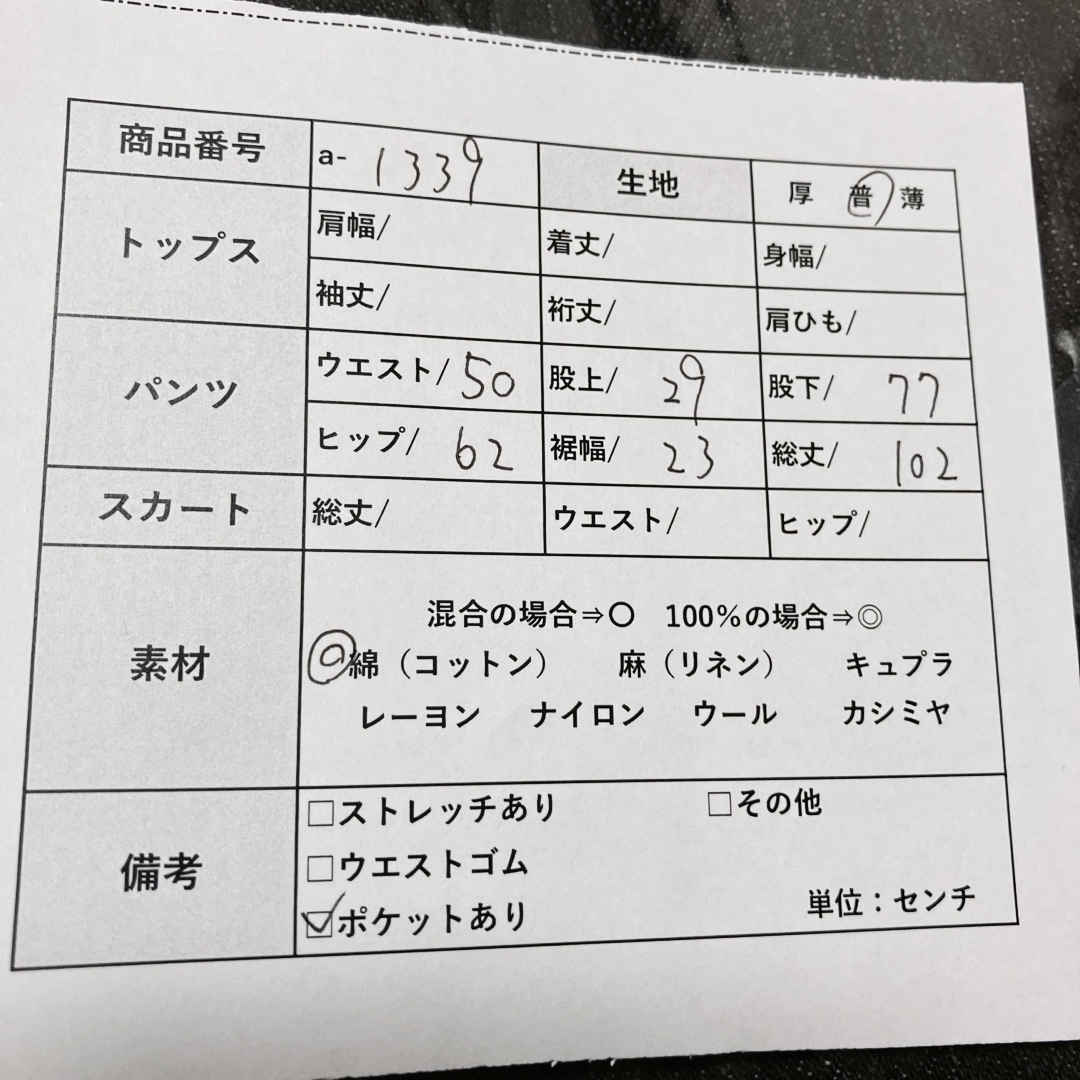 商品番号 a- 1339 生地 厚 普 薄
トップス
肩幅/ 着丈/ 身幅/
袖丈/ 裄丈/ 肩ひも/
パンツ
ウエスト/ 50 股上/ 29 股下/ 77
ヒップ/ 62 裾幅/ 23 総丈/ 102
スカート 総丈/ ウエスト/ ヒップ/
素材
混合の場合⇒〇 100%の場合⇒◎
◎綿（コットン） 麻（リネン） キュプラ
レーヨン ナイロン ウール カシミヤ
備考
□ストレッチあり □その他
□ウエストゴム
☑ポケットあり 単位：センチ